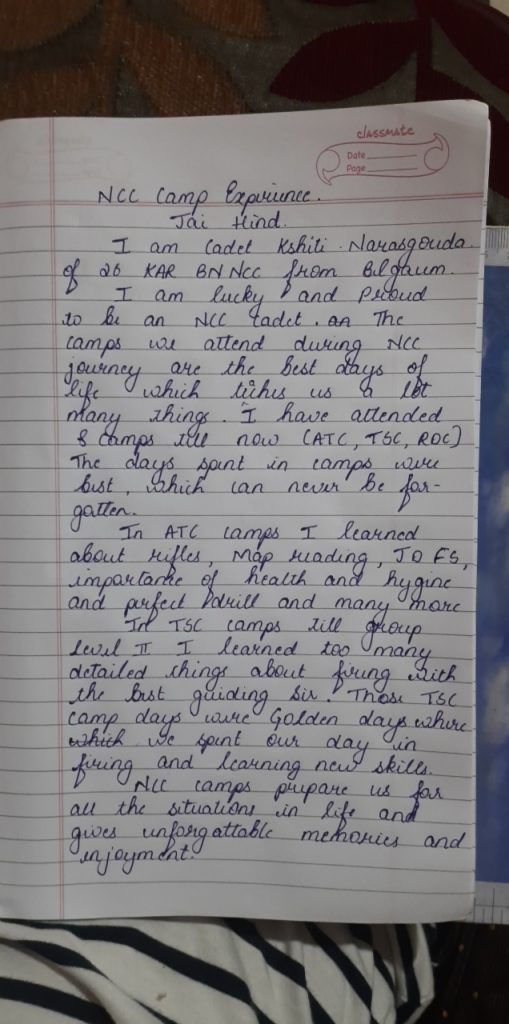 classmate
Date
Page
NCC Camp Expirience.
Jai Hind.
I am Cadet Kshiti Narasgouda
of 26 KAR BN NCC from Bilgaum.
I am lucky and Proud
to be an NCC Cadet. The
camps we attend during NCC
journey are the best days of
life which tiches us a lot
many things. I have attended
8 camps till now (ATC, TSC, RDC)
The days spent in camps were
best, which can never be for-
gotten.
In ATC camps I learned
about rifles, Map reading, JD FS,
importance of health and hygine
and perfect drill and many more
In TSC camps till group
level II I learned too many
detailed things about firing with
the best guiding sir. Those TSC
camp days were Golden days where
which we spent our day in
firing and learning new skills.
NCC camps prepare us for
all the situations in life and
gives unforgattable memories and
enjoyment.